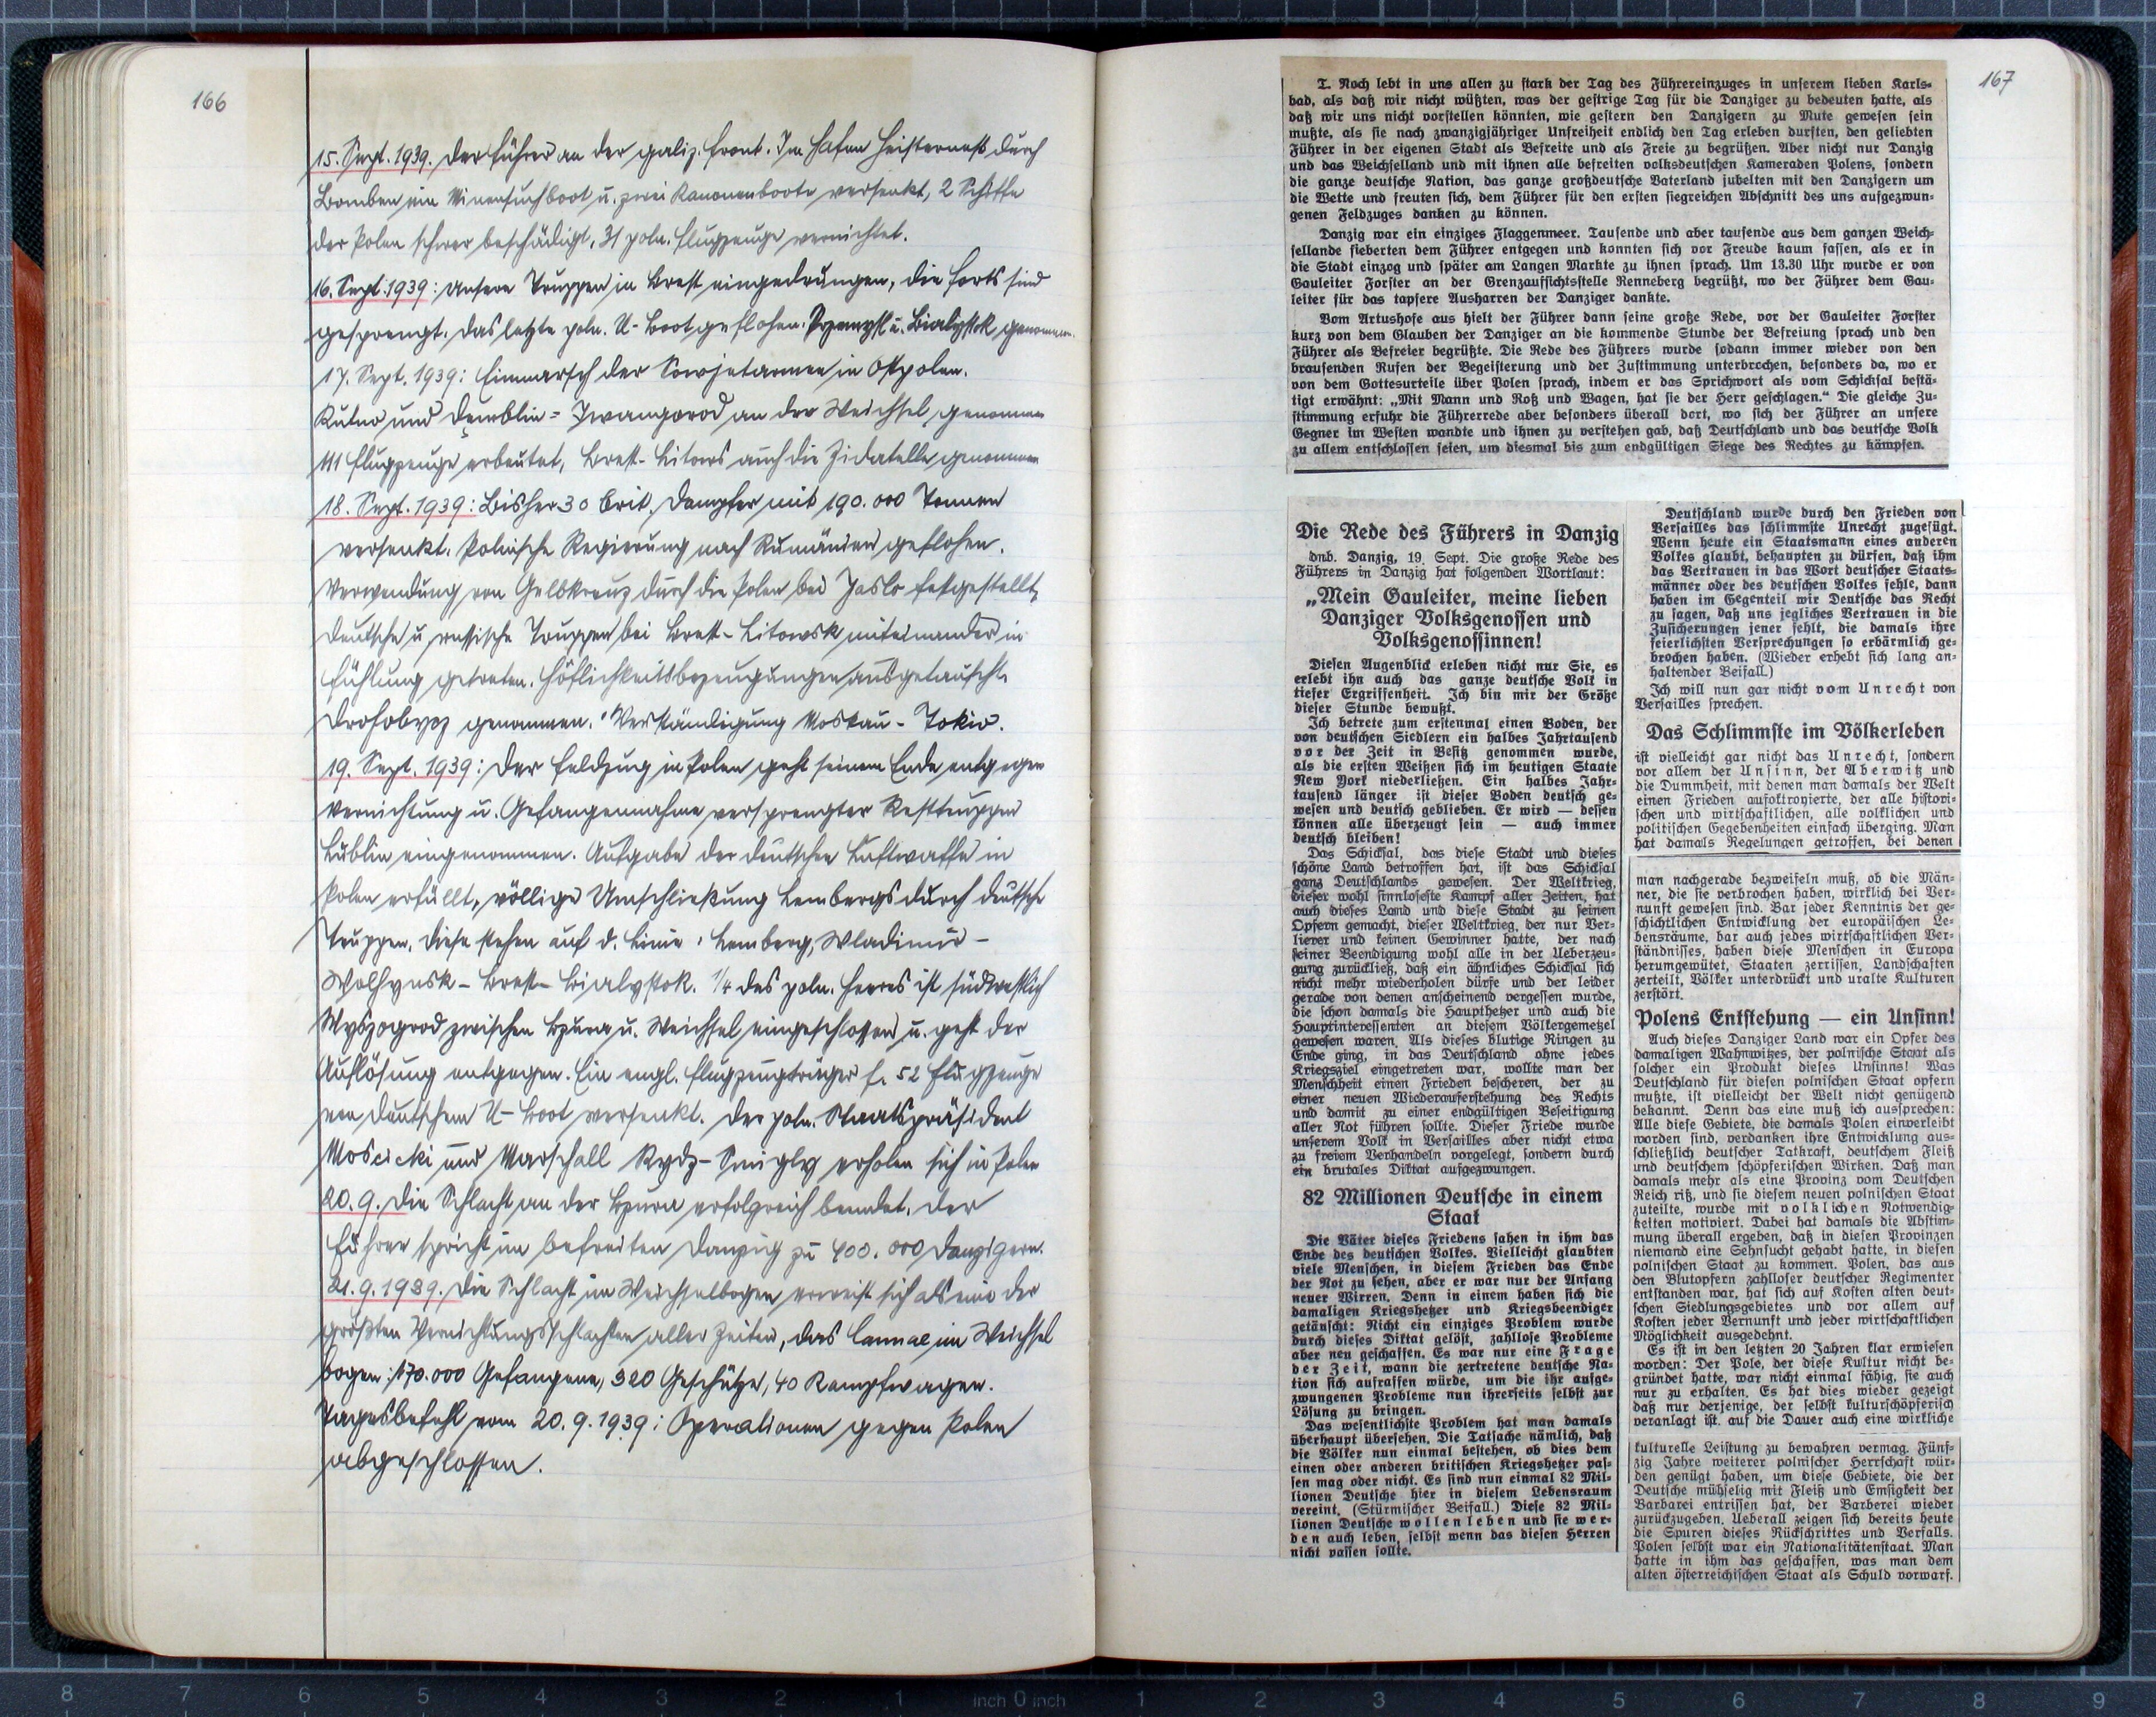 166
15. Sept. 1939. Der Führer an der galiz. Front. Im Hafen Heisternest durch
Bomben ein Minensuchboot u. zwei Kanonenboote versenkt, 2 Schiffe
der Polen schwer beschädigt, 31 poln. Flugzeuge vernichtet.
16. Sept. 1939: Unsere Truppen in Brest eingedrungen, die Forts sind
gesprengt. Das letzte poln. U-Boot geflohen. Przemysl u. Bialystok genommen.
17. Sept. 1939: Einmarsch der Sowjetarmee in Ostpolen.
Kutno und Demblin = Iwangorod an der Weichsel genommen
111 Flugzeuge erbeutet, Brest-Litows auch die Zidatelle genommen
18. Sept. 1939: Bisher 30 brit. Dampfer mit 190.000 Tonnen
versenkt. Polnische Regierung nach Rumänien geflohen.
Verwendung von Gelbkreuz durch die Polen bei Jaslo festgestellt,
Deutsche u. russische Truppen bei Brest-Litowsk miteinander in
Fühlung getreten. Höflichkeitsbezeugungen ausgetauscht.
Drohobycz genommen. Verständigung Moskau - Tokio.
19. Sept. 1939: Der Feldzug in Polen geht seinem Ende entgegen
Vernichtung u. Gefangennahme versprengter Resttruppen
Lublin eingenommen. Aufgabe der deutschen Luftwaffe in
Polen erfüllt, völlige Umschließung Lembergs durch deutsche
Truppen. Diese stehen auf d. Linie: Lemberg, Wladimir -
Wolhynsk - Brest - Bialystok. 1/4 des poln. Heeres ist südwestlich
Wyszogrod zwischen Bzura u. Weichsel eingeschlossen u. geht der
Auflösung entgegen. Ein engl. Flugzeugträger f. 52 Flugzeuge
von deutschem U-Boot versenkt. Der poln. Staatspräsident
Moscicki und Marschall Rydz-Smigly erholen sich in Polen
20. 9. Die Schlacht an der Bzura erfolgreich beendet. Der
Führer spricht im befreiten Danzig zu 400.000 Danzigern.
21. 9. 1939. Die Schlacht im Weichselbogen erweist sich als eine der
größten Vernichtungsschlachten aller Zeiten, das Cannae im Weichsel
bogen: 170.000 Gefangene, 320 Geschütze, 40 Kampfwagen.
Tagesbefehl vom 20. 9. 1939: Operationen gegen Polen
abgeschlossen.
167
T. Noch lebt in uns allen zu stark der Tag des Führereinzuges in unserem lieben Karls-
bad, als daß wir nicht wüßten, was der gestrige Tag für die Danziger zu bedeuten hatte, als
daß wir uns nicht vorstellen könnten, wie gestern den Danzigern zu Mute gewesen sein
mußte, als sie nach zwanzigjähriger Unfreiheit endlich den Tag erleben durften, den geliebten
Führer in der eigenen Stadt als Befreite und als Freie zu begrüßen. Aber nicht nur Danzig
und das Weichselland und mit ihnen alle befreiten volksdeutschen Kameraden Polens, sondern
die ganze deutsche Nation, das ganze großdeutsche Vaterland jubelten mit den Danzigern um
die Wette und freuten sich, dem Führer für den ersten siegreichen Abschnitt des uns aufgezwun-
genen Feldzuges danken zu können.
Danzig war ein einziges Flaggenmeer. Tausende und aber tausende aus dem ganzen Weich-
sellande fieberten dem Führer entgegen und konnten sich vor Freude kaum fassen, als er in
die Stadt einzog und später am Langen Markte zu ihnen sprach. Um 13.30 Uhr wurde er von
Gauleiter Forster an der Grenzaufsichtsstelle Renneberg begrüßt, wo der Führer dem Gau-
leiter für das tapfere Ausharren der Danziger dankte.
Vom Artushofe aus hielt der Führer dann seine große Rede, vor der Gauleiter Forster
kurz von dem Glauben der Danziger an die kommende Stunde der Befreiung sprach und den
Führer als Befreier begrüßte. Die Rede des Führers wurde sodann immer wieder von den
brausenden Rufen der Begeisterung und der Zustimmung unterbrochen, besonders da, wo er
von dem Gottesurteile über Polen sprach, indem er das Sprichwort als vom Schicksal bestä-
tigt erwähnt: „Mit Mann und Roß und Wagen, hat sie der Herr geschlagen.“ Die gleiche Zu-
stimmung erfuhr die Führerrede aber besonders überall dort, wo sich der Führer an unsere
Gegner im Westen wandte und ihnen zu verstehen gab, daß Deutschland und das deutsche Volk
zu allem entschlossen seien, um diesmal bis zum endgültigen Siege des Rechtes zu kämpfen.
Die Rede des Führers in Danzig
dnb. Danzig, 19. Sept. Die große Rede des
Führers in Danzig hat folgenden Wortlaut:
„Mein Gauleiter, meine lieben
Danziger Volksgenossen und
Volksgenossinnen!
Diesen Augenblick erleben nicht nur Sie, es
erlebt ihn auch das ganze deutsche Volk in
tiefer Ergriffenheit. Ich bin mir der Größe
dieser Stunde bewußt.
Ich betrete zum erstenmal einen Boden, der
von deutschen Siedlern ein halbes Jahrtausend
vor der Zeit in Besitz genommen wurde,
als die ersten Weißen sich im heutigen Staate
New York niederließen. Ein halbes Jahr-
tausend länger ist dieser Boden deutsch ge-
wesen und deutsch geblieben. Er wird — dessen
können alle überzeugt sein — auch immer
deutsch bleiben!
Das Schicksal, das diese Stadt und dieses
schöne Land betroffen hat, ist das Schicksal
ganz Deutschlands gewesen. Der Weltkrieg,
dieser wohl sinnloseste Kampf aller Zeiten, hat
auch dieses Land und diese Stadt zu seinen
Opfern gemacht, dieser Weltkrieg, der nur Ver-
lierer und keinen Gewinner hatte, der nach
seiner Beendigung wohl alle in der Ueberzeu-
gung zurückließ, daß ein ähnliches Schicksal sich
nicht mehr wiederholen dürfe und der leider
gerade von denen anscheinend vergessen wurde,
die schon damals die Haupthetzer und auch die
Hauptinteressenten an diesem Völkergemetzel
gewesen waren. Als dieses blutige Ringen zu
Ende ging, in das Deutschland ohne jedes
Kriegsziel eingetreten war, wollte man der
Menschheit einen Frieden bescheren, der zu
einer neuen Wiederauferstehung des Rechts
und damit zu einer endgültigen Beseitigung
aller Not führen sollte. Dieser Friede wurde
unserem Volk in Versailles aber nicht etwa
zu freiem Verhandeln vorgelegt, sondern durch
ein brutales Diktat aufgezwungen.
82 Millionen Deutsche in einem
Staat
Die Väter dieses Friedens sahen in ihm das
Ende des deutschen Volkes. Vielleicht glaubten
viele Menschen, in diesem Frieden das Ende
der Not zu sehen, aber er war nur der Anfang
neuer Wirren. Denn in einem haben sich die
damaligen Kriegshetzer und Kriegsbeendiger
getäuscht: Nicht ein einziges Problem wurde
durch dieses Diktat gelöst, zahllose Probleme
aber neu geschaffen. Es war nur eine Frage
der Zeit, wann die zertretene deutsche Na-
tion sich aufraffen würde, um die ihr aufge-
zwungenen Probleme nun ihrerseits selbst zur
Lösung zu bringen.
Das wesentlichste Problem hat man damals
überhaupt übersehen. Die Tatsache nämlich, daß
die Völker nun einmal bestehen, ob dies dem
einen oder anderen britischen Kriegshetzer pas-
sen mag oder nicht. Es sind nun einmal 82 Mil-
lionen Deutsche hier in diesem Lebensraum
vereint. (Stürmischer Beifall.) Diese 82 Mil-
lionen Deutsche wollen leben und sie wer-
den auch leben, selbst wenn das diesen Herren
nicht passen sollte.
Deutschland wurde durch den Frieden von
Versailles das schlimmste Unrecht zugefügt.
Wenn heute ein Staatsmann eines anderen
Volkes glaubt, behaupten zu dürfen, daß ihm
das Vertrauen in das Wort deutscher Staats-
männer oder des deutschen Volkes fehle, dann
haben im Gegenteil wir Deutsche das Recht
zu sagen, daß uns jegliches Vertrauen in die
Zusicherungen jener fehlt, die damals ihre
feierlichsten Versprechungen so erbärmlich ge-
brochen haben. (Wieder erhebt sich lang an-
haltender Beifall.)
Ich will nun gar nicht vom Unrecht von
Versailles sprechen.
Das Schlimmste im Völkerleben
ist vielleicht gar nicht das Unrecht, sondern
vor allem der Unsinn, der Aberwitz und
die Dummheit, mit denen man damals der Welt
einen Frieden aufoktroyierte, der alle histori-
schen und wirtschaftlichen, alle volklichen und
politischen Gegebenheiten einfach überging. Man
hat damals Regelungen getroffen, bei denen
man nachgerade bezweifeln muß, ob die Män-
ner, die sie verbrochen haben, wirklich bei Ver-
nunft gewesen sind. Bar jeder Kenntnis der ge-
schichtlichen Entwicklung der europäischen Le-
bensräume, bar auch jedes wirtschaftlichen Ver-
ständnisses, haben diese Menschen in Europa
herumgewütet, Staaten zerrissen, Landschaften
zerteilt, Völker unterdrückt und uralte Kulturen
zerstört.
Polens Entstehung — ein Unsinn!
Auch dieses Danziger Land war ein Opfer des
damaligen Wahnwitzes, der polnische Staat als
solcher ein Produkt dieses Unsinns! Was
Deutschland für diesen polnischen Staat opfern
mußte, ist vielleicht der Welt nicht genügend
bekannt. Denn das eine muß ich aussprechen:
Alle diese Gebiete, die damals Polen einverleibt
worden sind, verdanken ihre Entwicklung aus-
schließlich deutscher Tatkraft, deutschem Fleiß
und deutschem schöpferischen Wirken. Daß man
damals mehr als eine Provinz vom Deutschen
Reich riß, und sie diesem neuen polnischen Staat
zuteilte, wurde mit volklichen Notwendig-
keiten motiviert. Dabei hat damals die Abstim-
mung überall ergeben, daß in diesen Provinzen
niemand eine Sehnsucht gehabt hatte, in diesen
polnischen Staat zu kommen. Polen, das aus
den Blutopfern zahlloser deutscher Regimenter
entstanden war, hat sich auf Kosten alten deut-
schen Siedlungsgebietes und vor allem auf
Kosten jeder Vernunft und jeder wirtschaftlichen
Möglichkeit ausgedehnt.
Es ist in den letzten 20 Jahren klar erwiesen
worden: Der Pole, der diese Kultur nicht be-
gründet hatte, war nicht einmal fähig, sie auch
nur zu erhalten. Es hat dies wieder gezeigt
daß nur derjenige, der selbst kulturschöpferisch
veranlagt ist, auf die Dauer auch eine wirkliche
kulturelle Leistung zu bewahren vermag. Fünf-
zig Jahre weiterer polnischer Herrschaft wür-
den genügt haben, um diese Gebiete, die der
Deutsche mühselig mit Fleiß und Emsigkeit der
Barbarei entrissen hat, der Barberei wieder
zurückzugeben. Ueberall zeigen sich bereits heute
die Spuren dieses Rückschrittes und Verfalls.
Polen selbst war ein Nationalitätenstaat. Man
hatte in ihm das geschaffen, was man dem
alten österreichischen Staat als Schuld vorwarf.
8 7 6 5 4 3 2 1 inch 0 inch 1 2 3 4 5 6 7 8 9